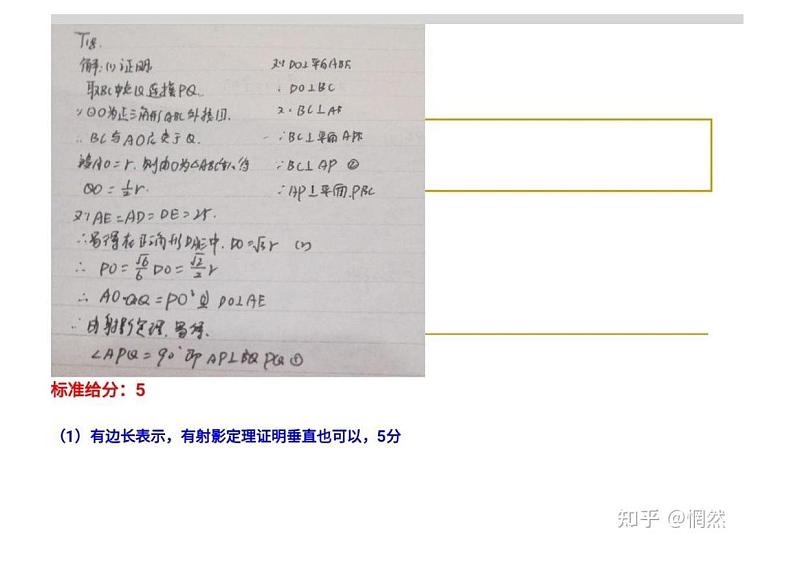 T18.
解:(1)证明
取BC中点Q连接PQ.
∵⊙O为正三角形ABC外接圆.
∴BC与AO交于Q.
设AO=r.则由O为△ABC
QO=½r.
又∵AE=AD=DE=2r.
∴易得在正三角形DAE中.DO=√3r
∴PO=√6/6 DO=√2/2 r
∴AO·OQ=PO² 且 DO⊥AE
∴由射影定理.易得.
∠APQ=90°即AP⊥PQ ①
又∵DO⊥平面ABE
∴DO⊥BC
又∵BC⊥AE
∴BC⊥平面APE
∴BC⊥AP ②
∴AP⊥平面PBC
标准给分：5
（1）有边长表示，有射影定理证明垂直也可以，5分
知乎 @惘然